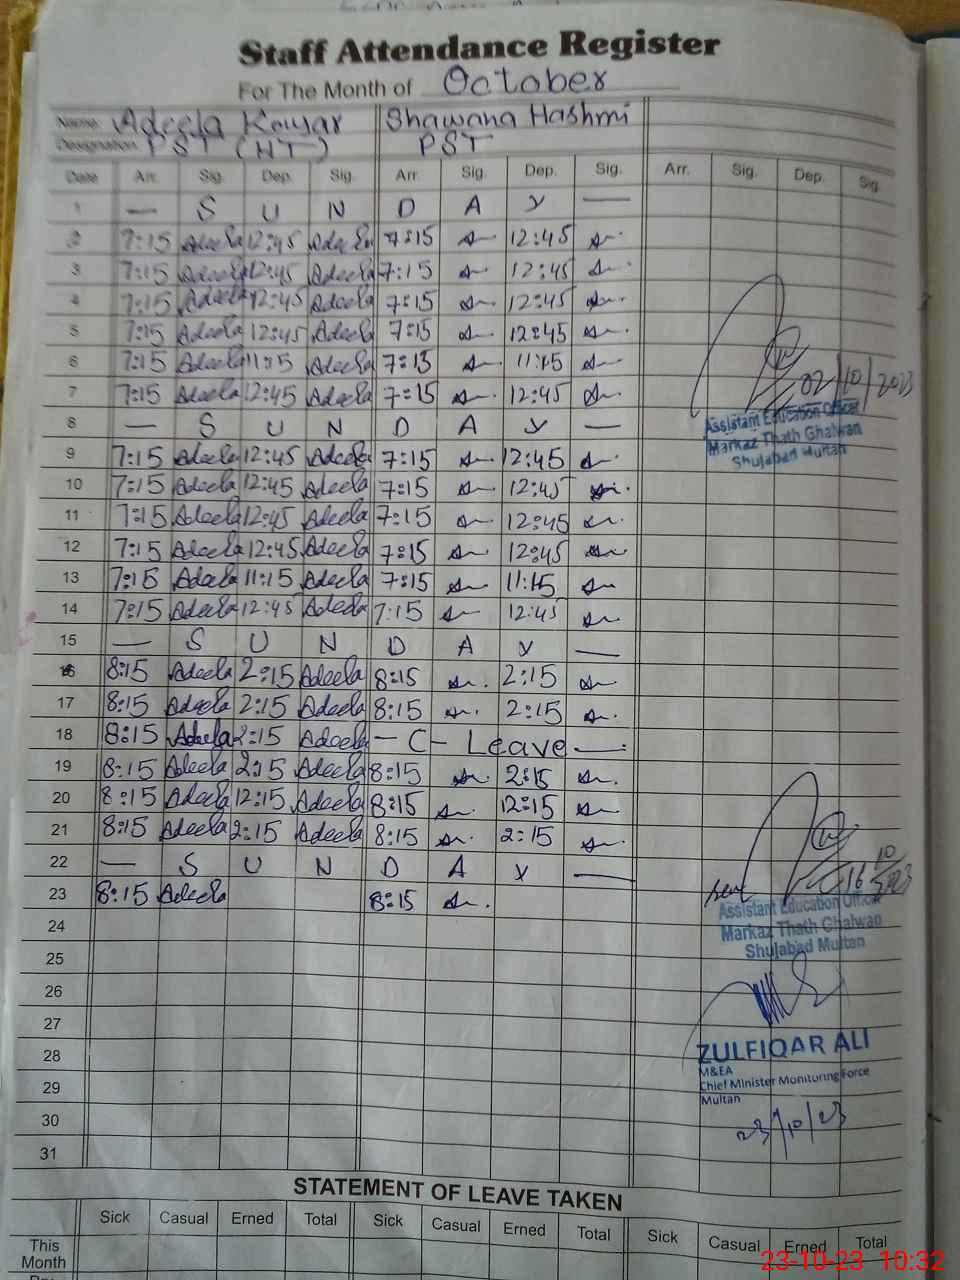 Staff Attendance Register
For The Month of October
Name: Adeela Kousar Shawana Hashmi
Designation PST (HT) PST
Date Arr. Sig. Dep. Sig. Arr. Sig. Dep. Sig. Arr. Sig. Dep. Sig.
1 — S U N D A Y —
2 7:15 Adeela 12:45 Adeela 7:15 12:45
3 7:15 Adeela 12:45 Adeela 7:15 12:45
4 7:15 Adeela 12:45 Adeela 7:15 12:45
5 7:15 Adeela 12:45 Adeela 7:15 12:45
6 7:15 Adeela 11:15 Adeela 7:15 11:15
7 7:15 Adeela 12:45 Adeela 7:15 12:45
02/10/2023
8 — S U N D A Y —
Assistant Education Officer
Markaz Thath Ghalwan
Shujabad Multan
9 7:15 Adeela 12:45 Adeela 7:15 12:45
10 7:15 Adeela 12:45 Adeela 7:15 12:45
11 7:15 Adeela 12:45 Adeela 7:15 12:45
12 7:15 Adeela 12:45 Adeela 7:15 12:45
13 7:15 Adeela 11:15 Adeela 7:15 11:15
14 7:15 Adeela 12:45 Adeela 7:15 12:45
15 — S U N D A Y —
16 8:15 Adeela 2:15 Adeela 8:15 2:15
17 8:15 Adeela 2:15 Adeela 8:15 2:15
18 8:15 Adeela 2:15 Adeela — C - Leave —
19 8:15 Adeela 2:15 Adeela 8:15 2:15
20 8:15 Adeela 12:15 Adeela 8:15 12:15
21 8:15 Adeela 2:15 Adeela 8:15 2:15
22 — S U N D A Y —
16/10/2023
23 8:15 Adeela 8:15
Assistant Education Officer
Markaz Thath Ghalwan
Shujabad Multan
24
25
26
27
28
ZULFIQAR ALI
M&EA
Chief Minister Monitoring Force
Multan
29
30
23/10/23
31
STATEMENT OF LEAVE TAKEN
Sick Casual Erned Total Sick Casual Erned Total Sick Casual Erned Total
This
Month
23-10-23 10:32